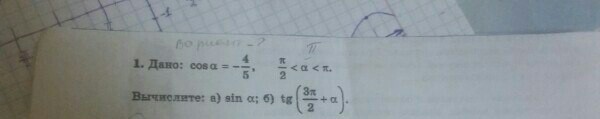 вариант-?
II
1. Дано: cos α = −4/5, π/2 < α < π.
Вычислите: а) sin α; б) tg(3π/2 + α).